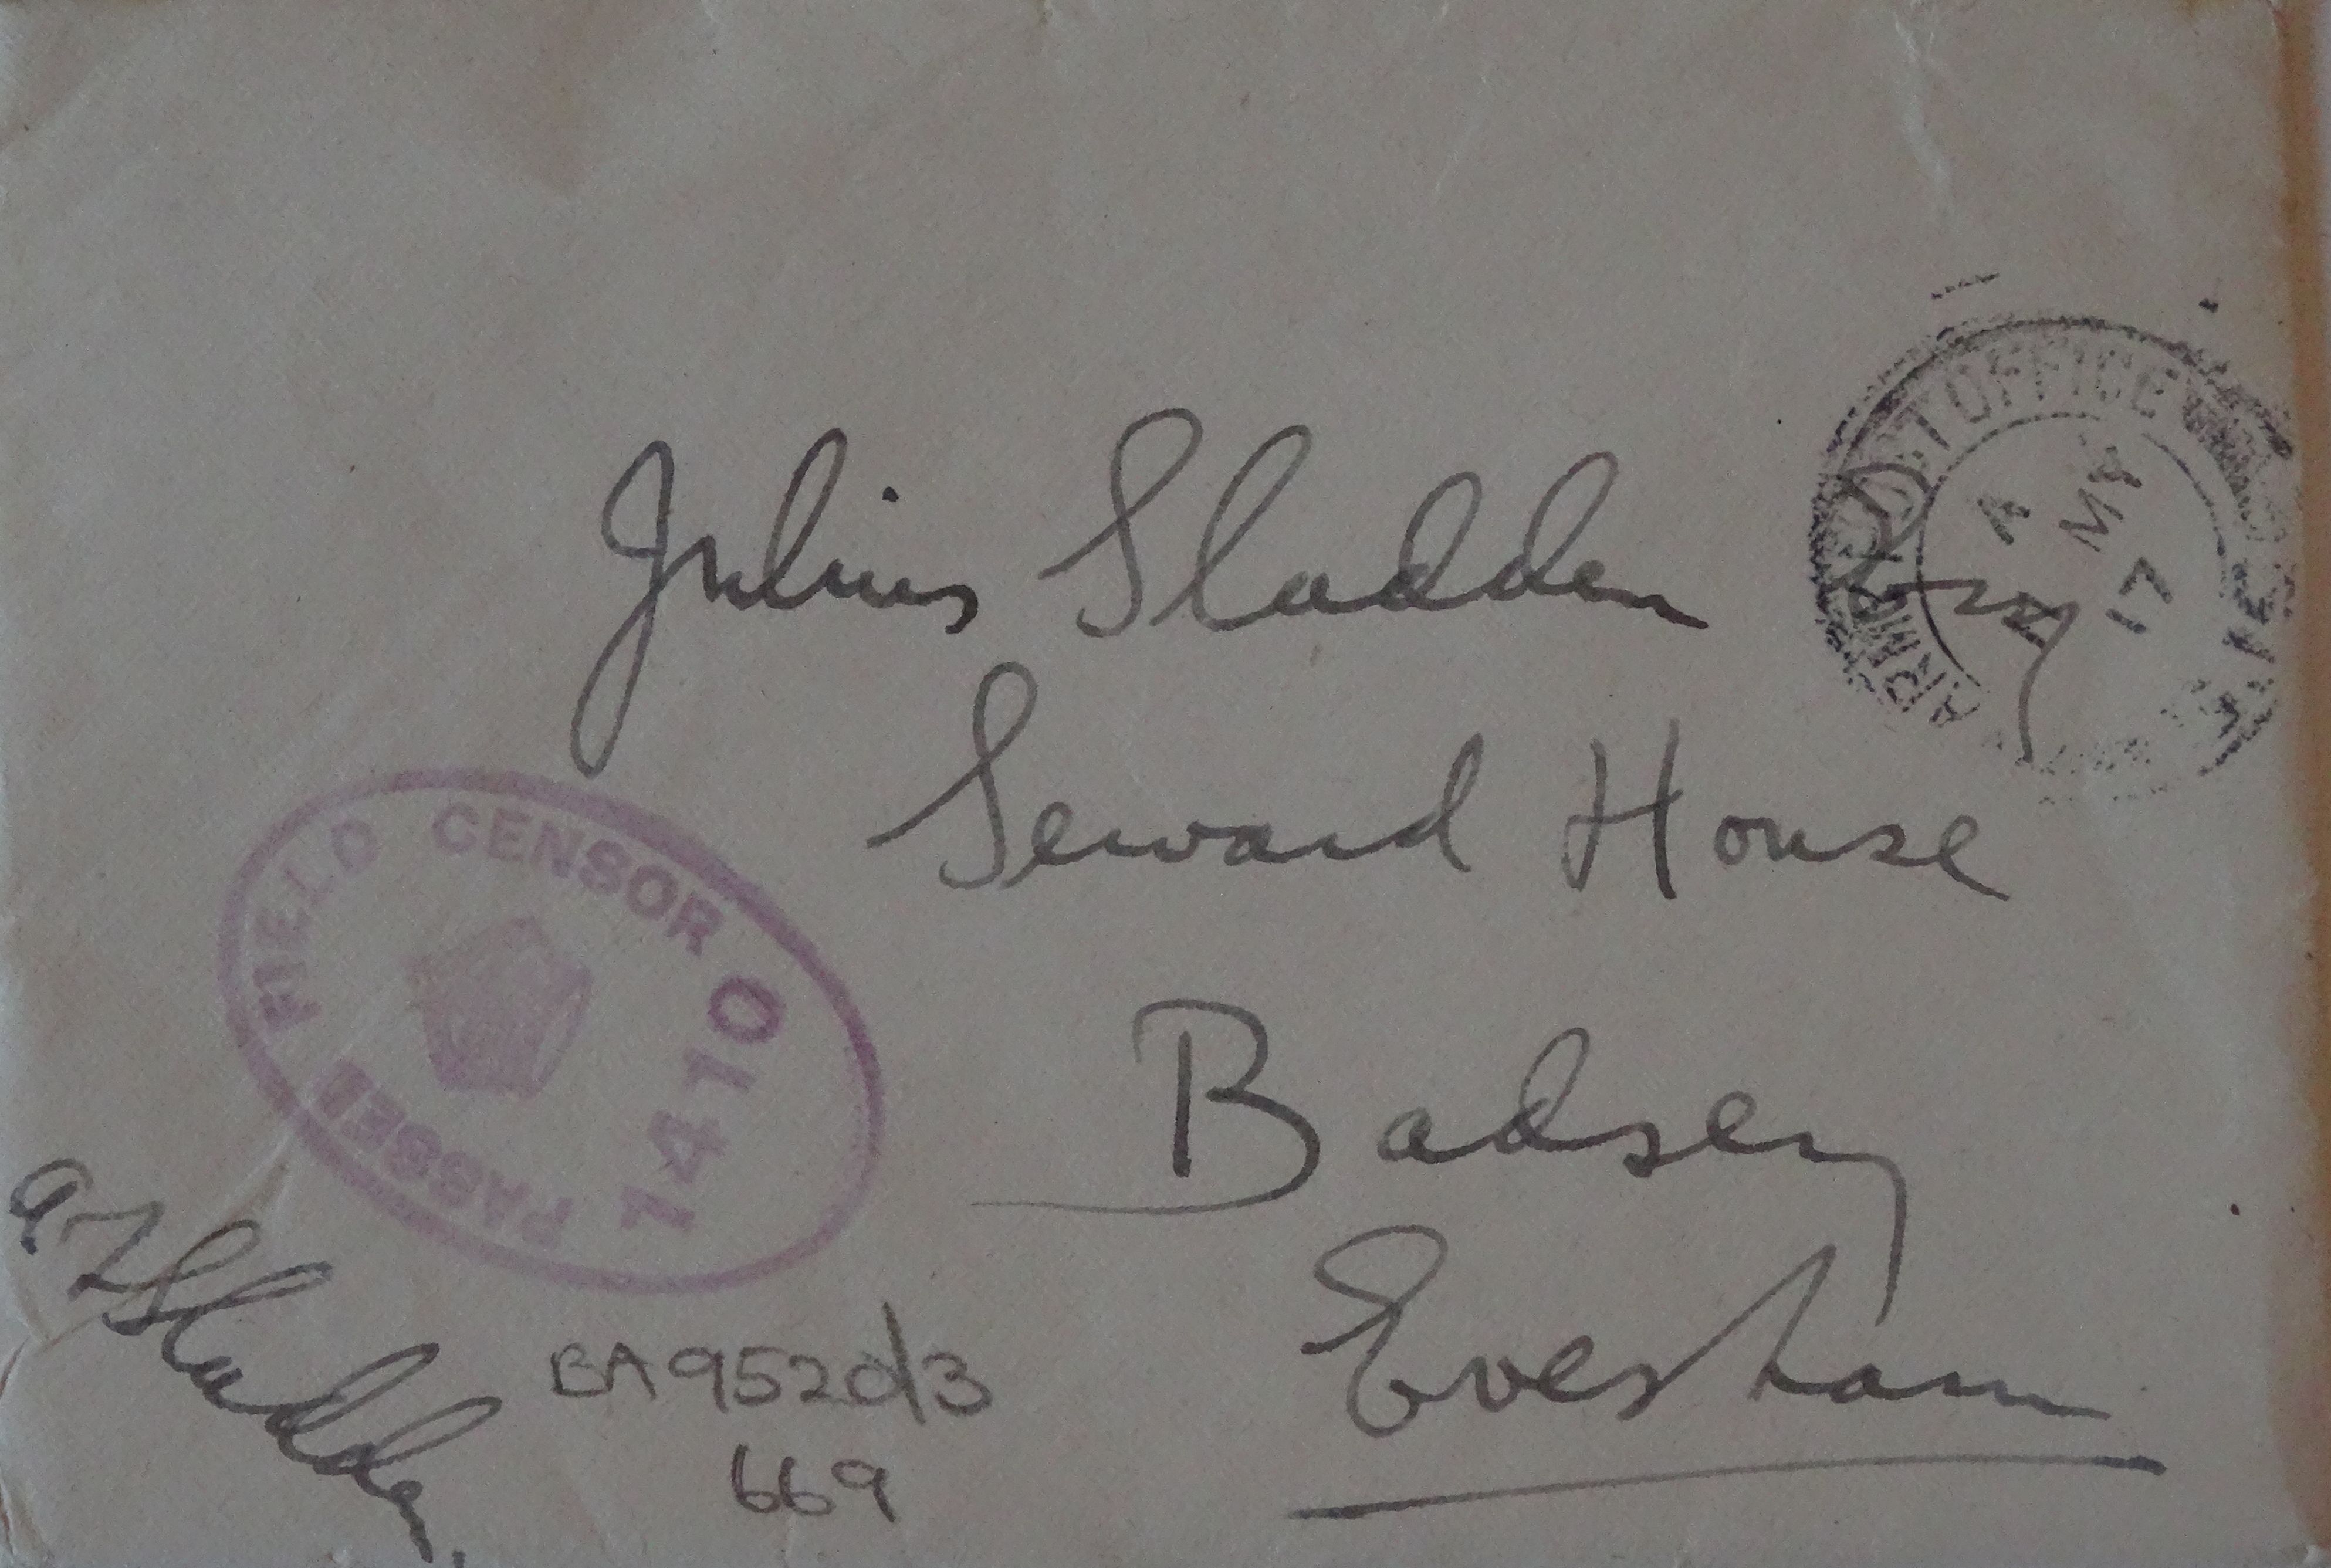 Julius Sladden Esq
Seward House
Badsey
Evesham
ARMY POST OFFICE
A
MY
17
PASSED FIELD CENSOR
1410
Sladden
BA9520/3
669